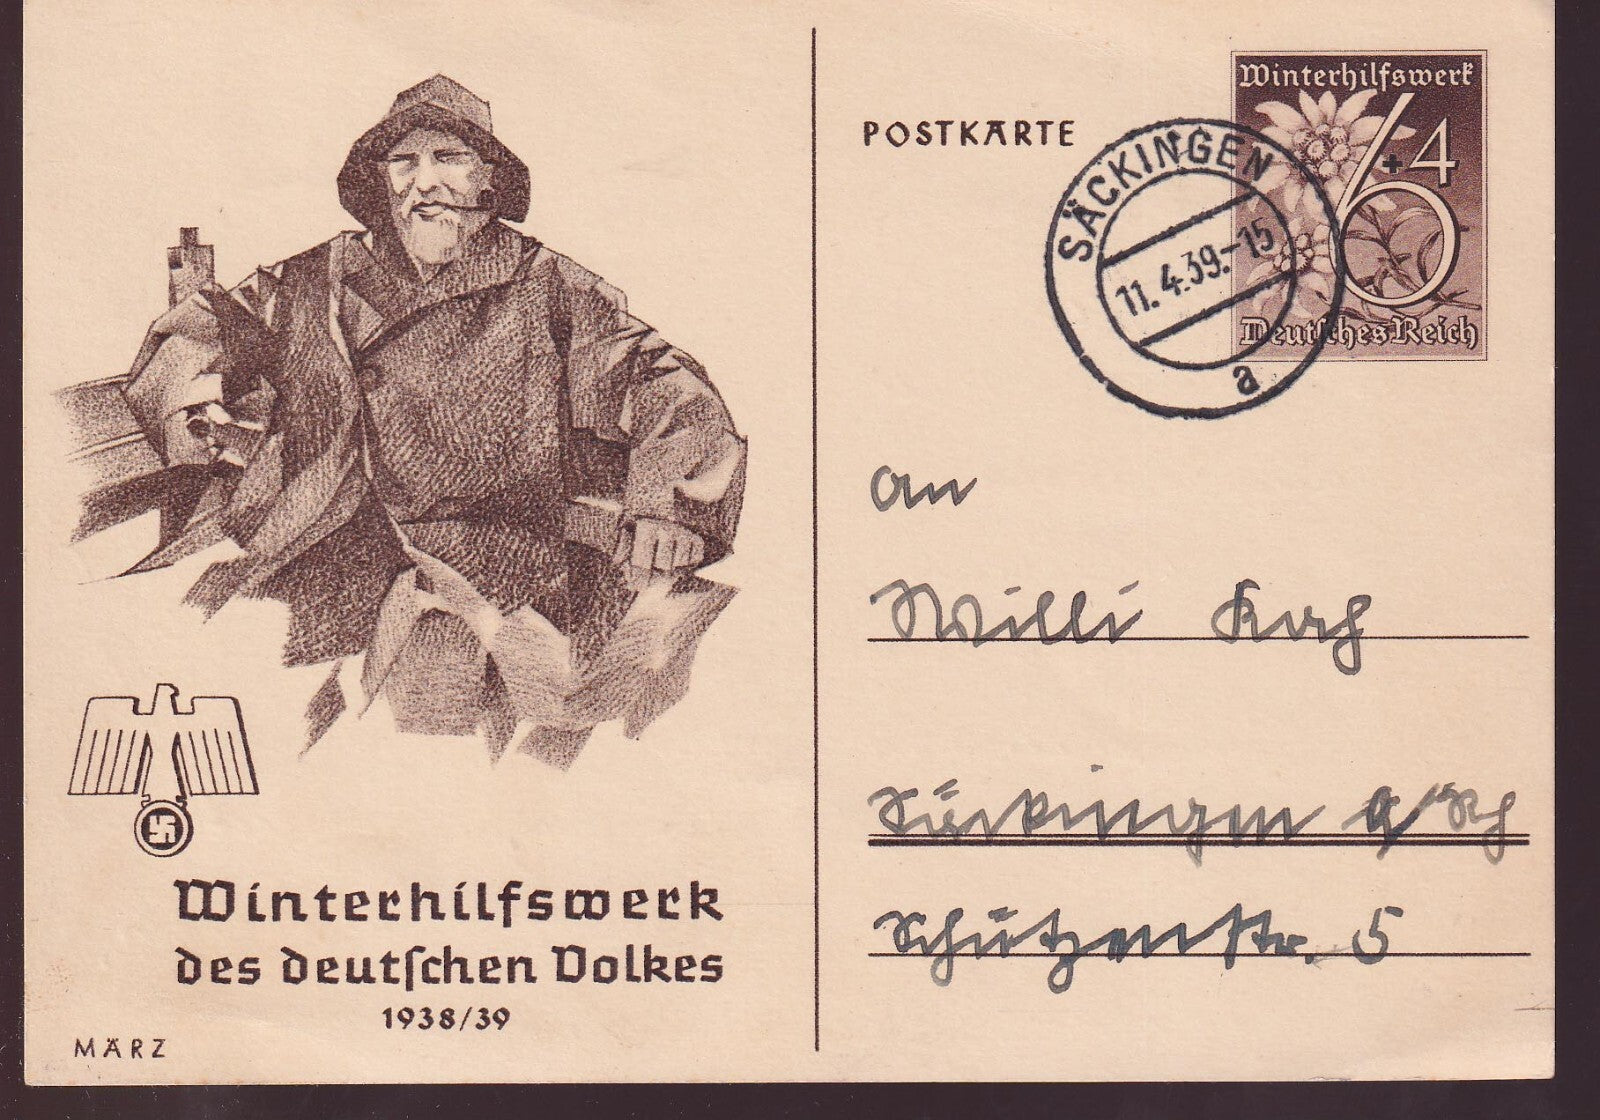 Winterhilfswerk
6+4
Deutsches Reich
POSTKARTE
SÄCKINGEN
11.4.39.-15
a
An
Willi Koch
Säckingen a/Rh
Schützenstr. 5
Winterhilfswerk
des deutſchen Volkes
1938/39
MÄRZ